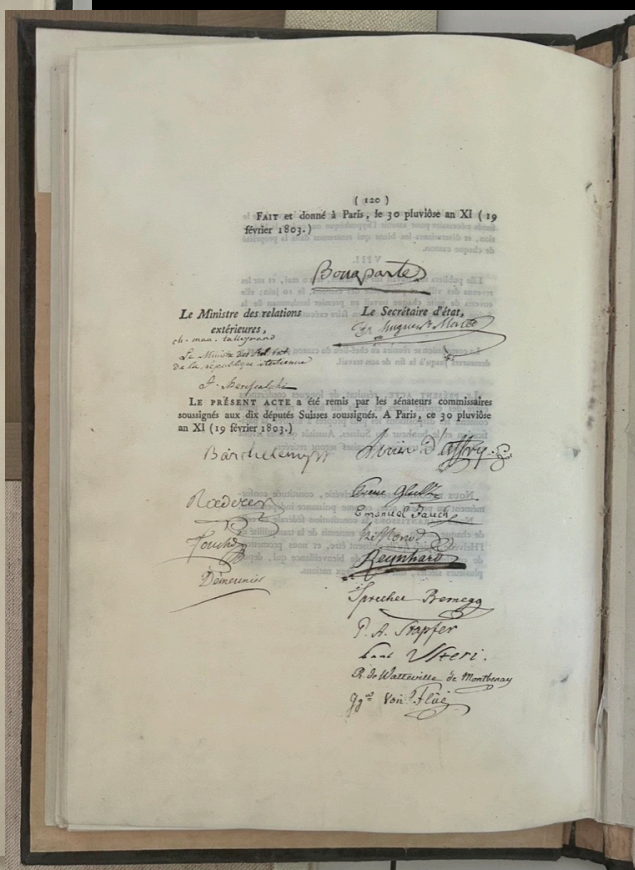 ( 120 )
FAIT et donné à Paris, le 30 pluviôse an XI ( 19
février 1803.)
Bonaparte
Le Ministre des relations
extérieures,
ch. mau. talleyrand
Le Ministre des Rel. ext.
de la république italienne
Le Secrétaire d'état,
Hugues Maret
LE PRÉSENT ACTE a été remis par les sénateurs commissaires
soussignés aux dix députés Suisses soussignés. A Paris, ce 30 pluviôse
an XI (19 février 1803.)
Barthelemy
Rœderer
Fouché
Démeunier
Louis D'affry
Emanuel Jauch
Reynhard
Sprecher Bernegg
P. A. Stapfer
Paul Usteri.
R. de Watteville de Montbenay
Von Flüe